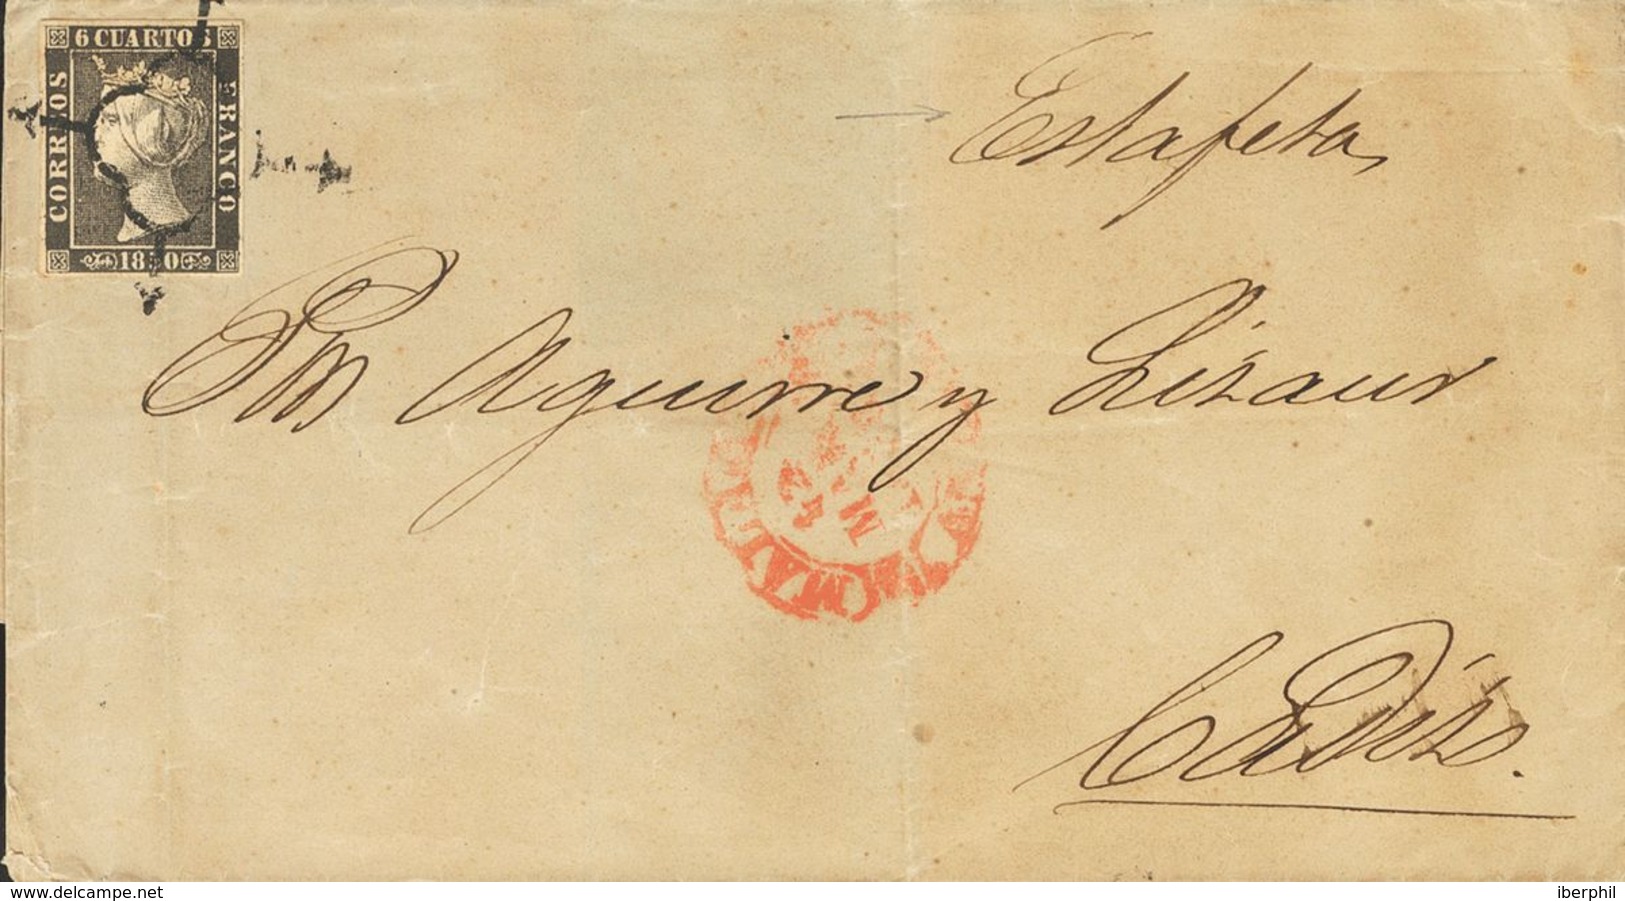 6 CUARTOS
CORREOS
FRANCO
1850
Estafeta
Aguirre y Lizaur
MADRID
Cádiz.
www.delcampe.net
iberphil